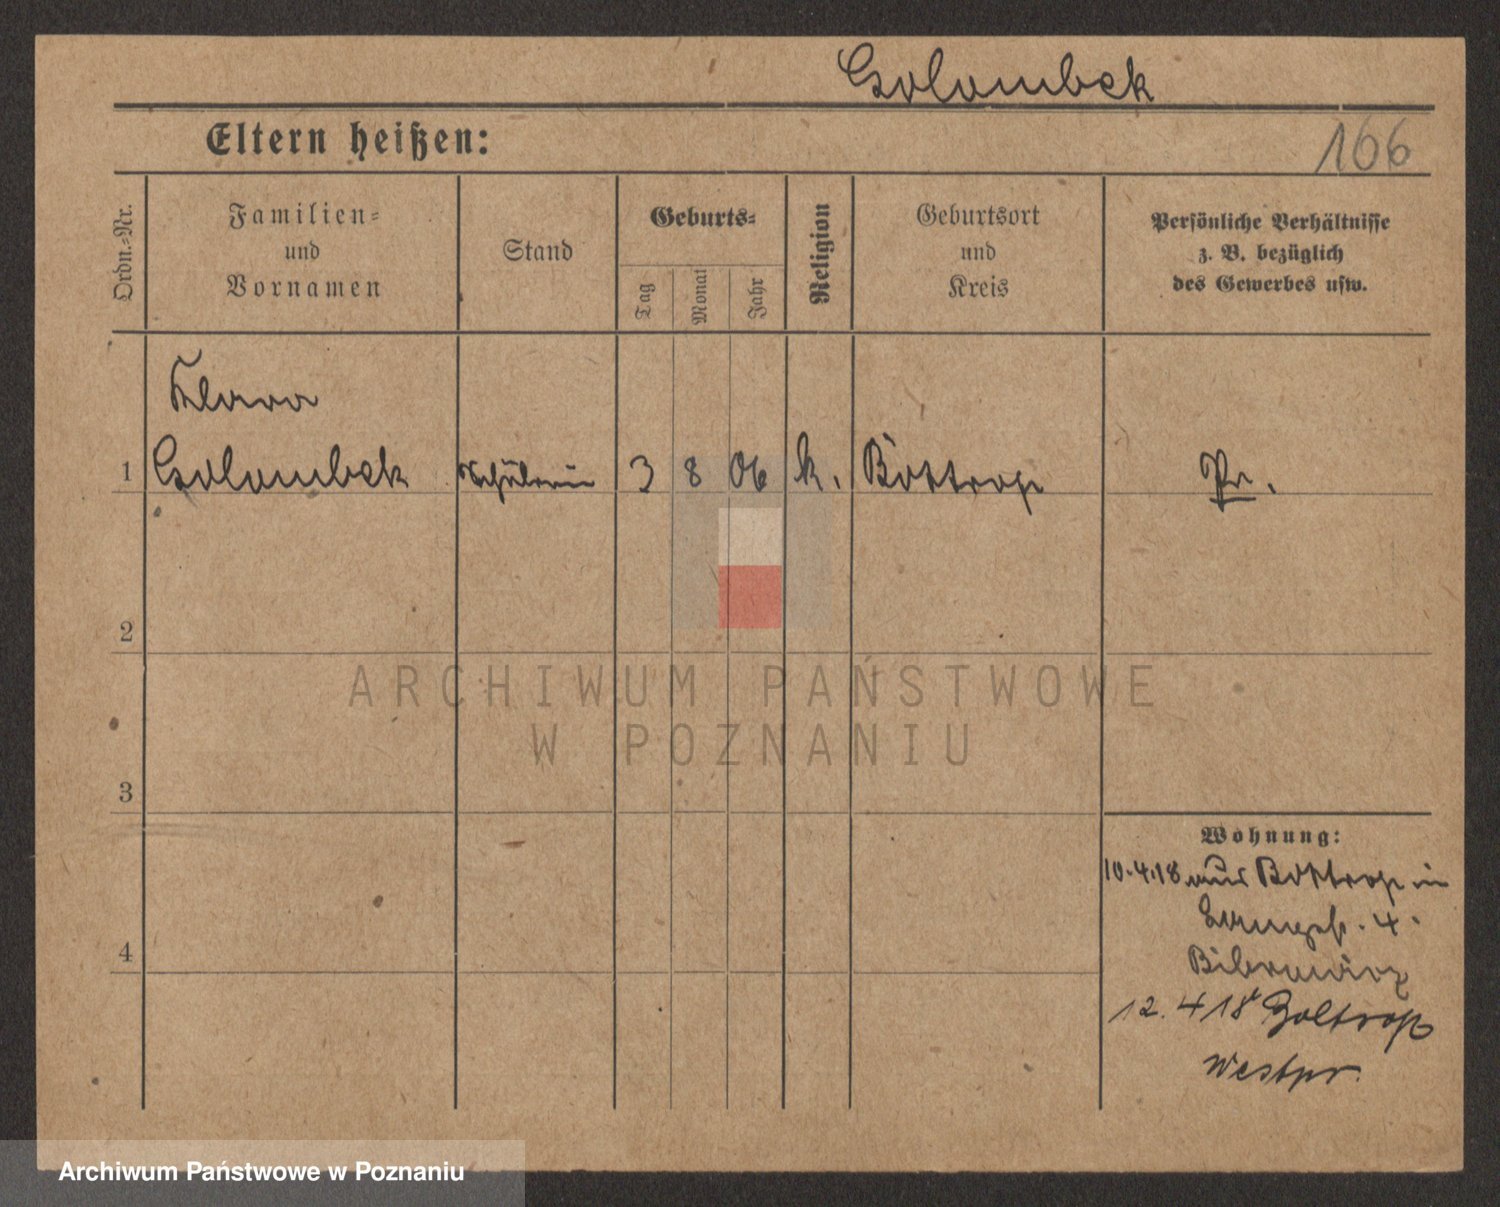 Golombek
Eltern heißen:
166
Ordn.-Nr.
Familien-
und
Vornamen
Stand
Geburts-
Tag
Monat
Jahr
Religion
Geburtsort
und
Kreis
Persönliche Verhältnisse
z. B. bezüglich
des Gewerbes usw.
Klara
1 Golombek Schülerin 3 8 06 k. Bottrop Pr.
2
3
4
Wohnung:
10.4.18 aus Bottrop in
4.
12. 4 18
Westpr.
ARCHIWUM PAŃSTWOWE
W POZNANIU
Archiwum Państwowe w Poznaniu